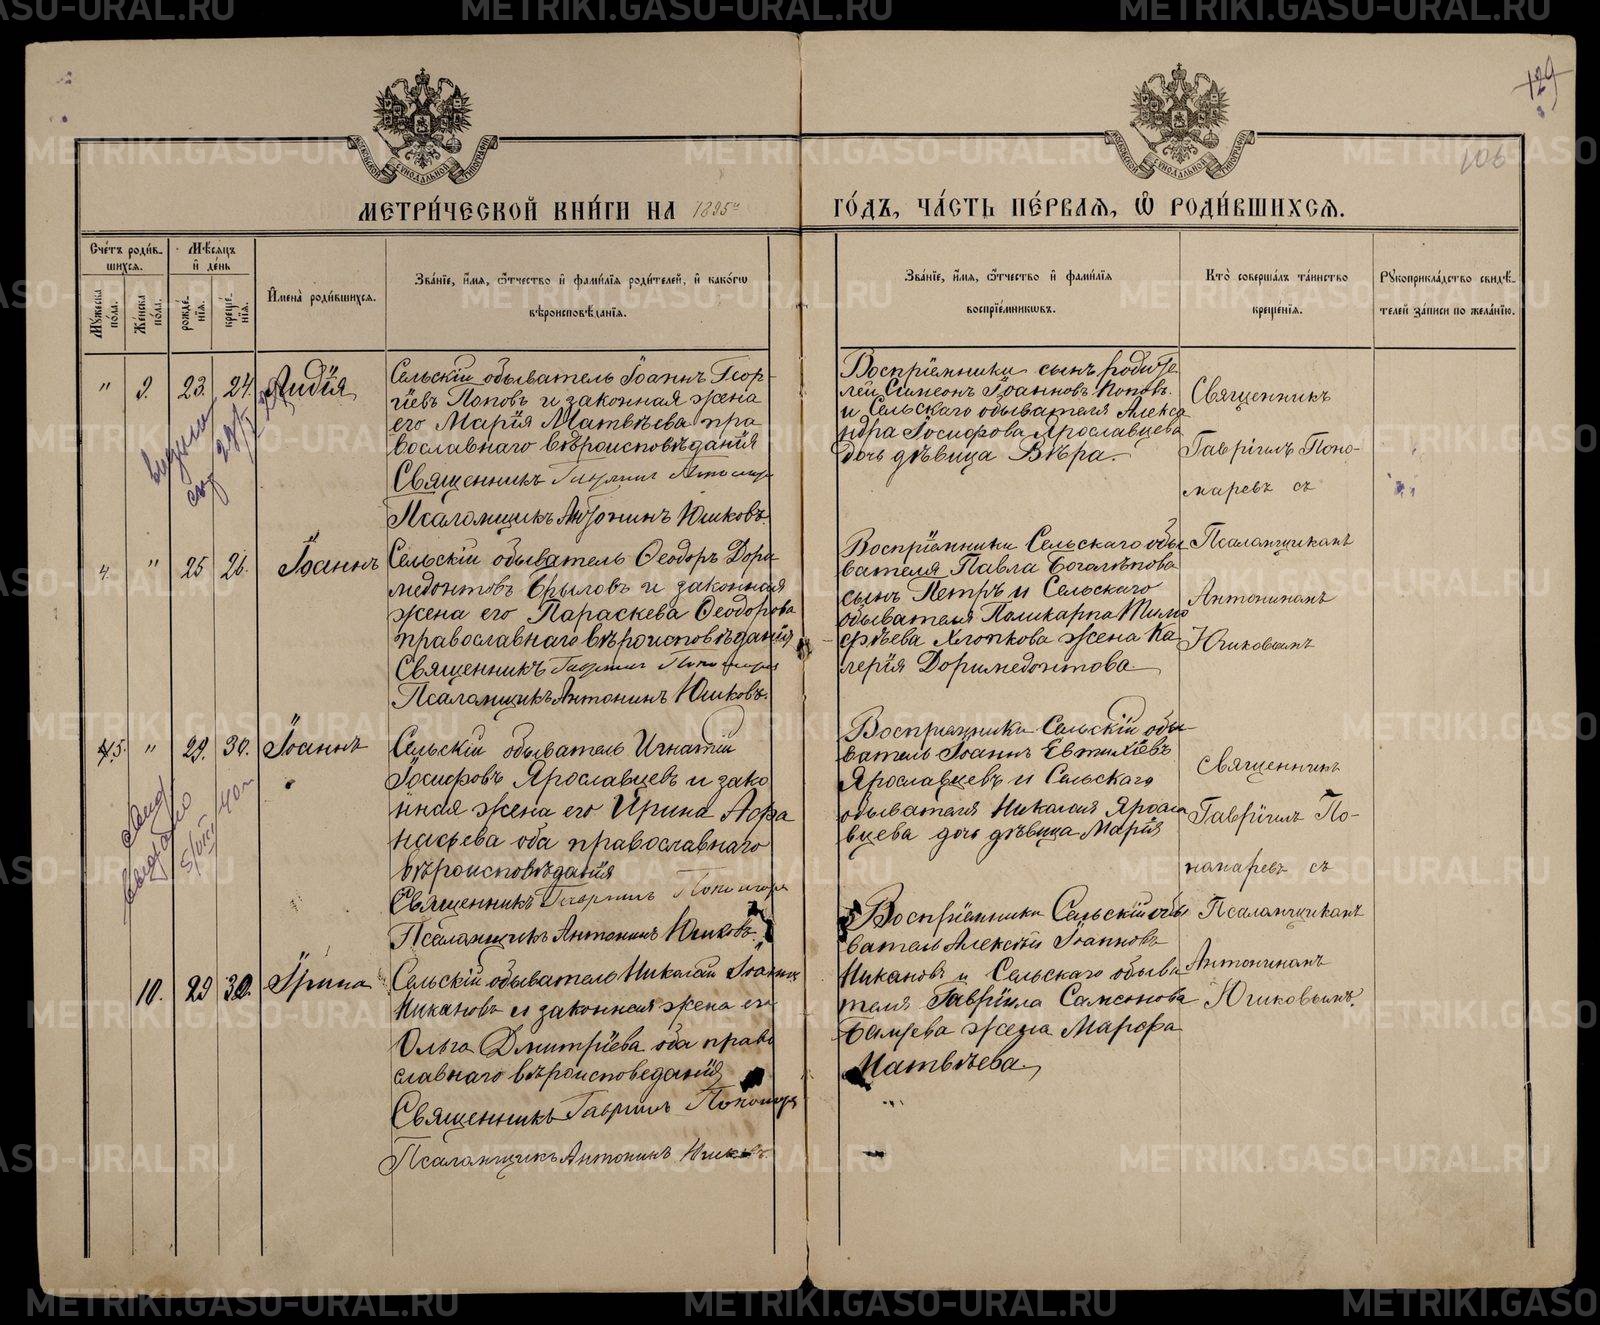 METRIKI.GASO-URAL.RU
129
106
МЕТРИ́ЧЕСКОЙ КНИ́ГИ НА 1895 ГО́ДЪ, ЧА́СТЬ ПЕ́РВАѦ, Ѡ҆ РОДИ́ВШИХСѦ.
Сче́тъ роди́вшихсѧ.
Мꙋ́жеска по́ла.
Же́нска по́ла.
Мѣ́сѧцъ и҆ де́нь
рожде́нїѧ.
креще́нїѧ.
И҆мена̀ роди́вшихсѧ.
Зва́нїе, и҆́мѧ, ѻ҆́тчество и҆ фами́лїѧ роди́телей, и҆ како́гѡ
вѣроисповѣ́данїѧ.
Зва́нїе, и҆́мѧ, ѻ҆́тчество и҆ фами́лїѧ
воспрїе́мникѡвъ.
Кто̀ соверша́лъ та́инство
креще́нїѧ.
Рꙋкоприкла́дство свидѣ́телей за́писи по жела́нїю.
" 9. 23. 24. Лидія
Сельскій обыватель Іоаннъ Геор-
гіевъ Поповъ и законная жена
его Марія Матвѣева пра
вославнаго вѣроисповѣданія
Священникъ Гавріилъ
Псаломщикъ Антонинъ Юшковъ.
Воспріемники сынъ родите
лей Симеонъ Іоанновъ Поповъ
и Сельскаго обывателя Алекса
ндра Іосифова Ярославцева
дочь дѣвица Вѣра.
Священникъ
Гавріилъ Поно-
маревъ съ
Псаломщикомъ
Антониномъ
Юшковымъ
4. " 25 26. Іоаннъ
Сельскій обыватель Ѳеодоръ Дори
медонтовъ Брыловъ и законная
жена его Параскева Ѳеодорова
православнаго вѣроисповѣданія
Священникъ Гавріилъ
Псаломщикъ Антонинъ Юшковъ.
Воспріемники Сельскаго обы
вателя Павла Боголѣпова
сынъ Петръ и Сельскаго
обывателя Поликарпа Тимо
фѣева Хлопкова жена Ка
лерія Доримедонтова
5. " 29. 30. Іоаннъ
Сельскій обыватель Игнатій
Іосифовъ Ярославцевъ и зако
нная жена его Ирина Аѳа
насьева оба православнаго
вѣроисповѣданія
Священникъ Гавріилъ
Псаломщикъ Антонинъ Юшковъ.
Воспріемники Сельскій обы
ватель Іоаннъ Евтихіевъ
Ярославцевъ и Сельскаго
обывателя Николая Яросла
вцева дочь дѣвица Марія
Священникъ
Гавріилъ По-
номаревъ съ
Псаломщикомъ
Антониномъ
Юшковымъ.
10. 29 30. Ірина
Сельскій обыватель Николай Іоанновъ
Никановъ и законная жена его
Ольга Дмитріева оба право
славнаго вѣроисповеданія
Священникъ Гавріилъ
Псаломщикъ Антонинъ Юшковъ
Воспріемники Сельскій обы
ватель Алексѣй Іоанновъ
Никановъ и Сельскаго обыва
теля Гавріила Самсонова
жена Марѳа
Матвѣева